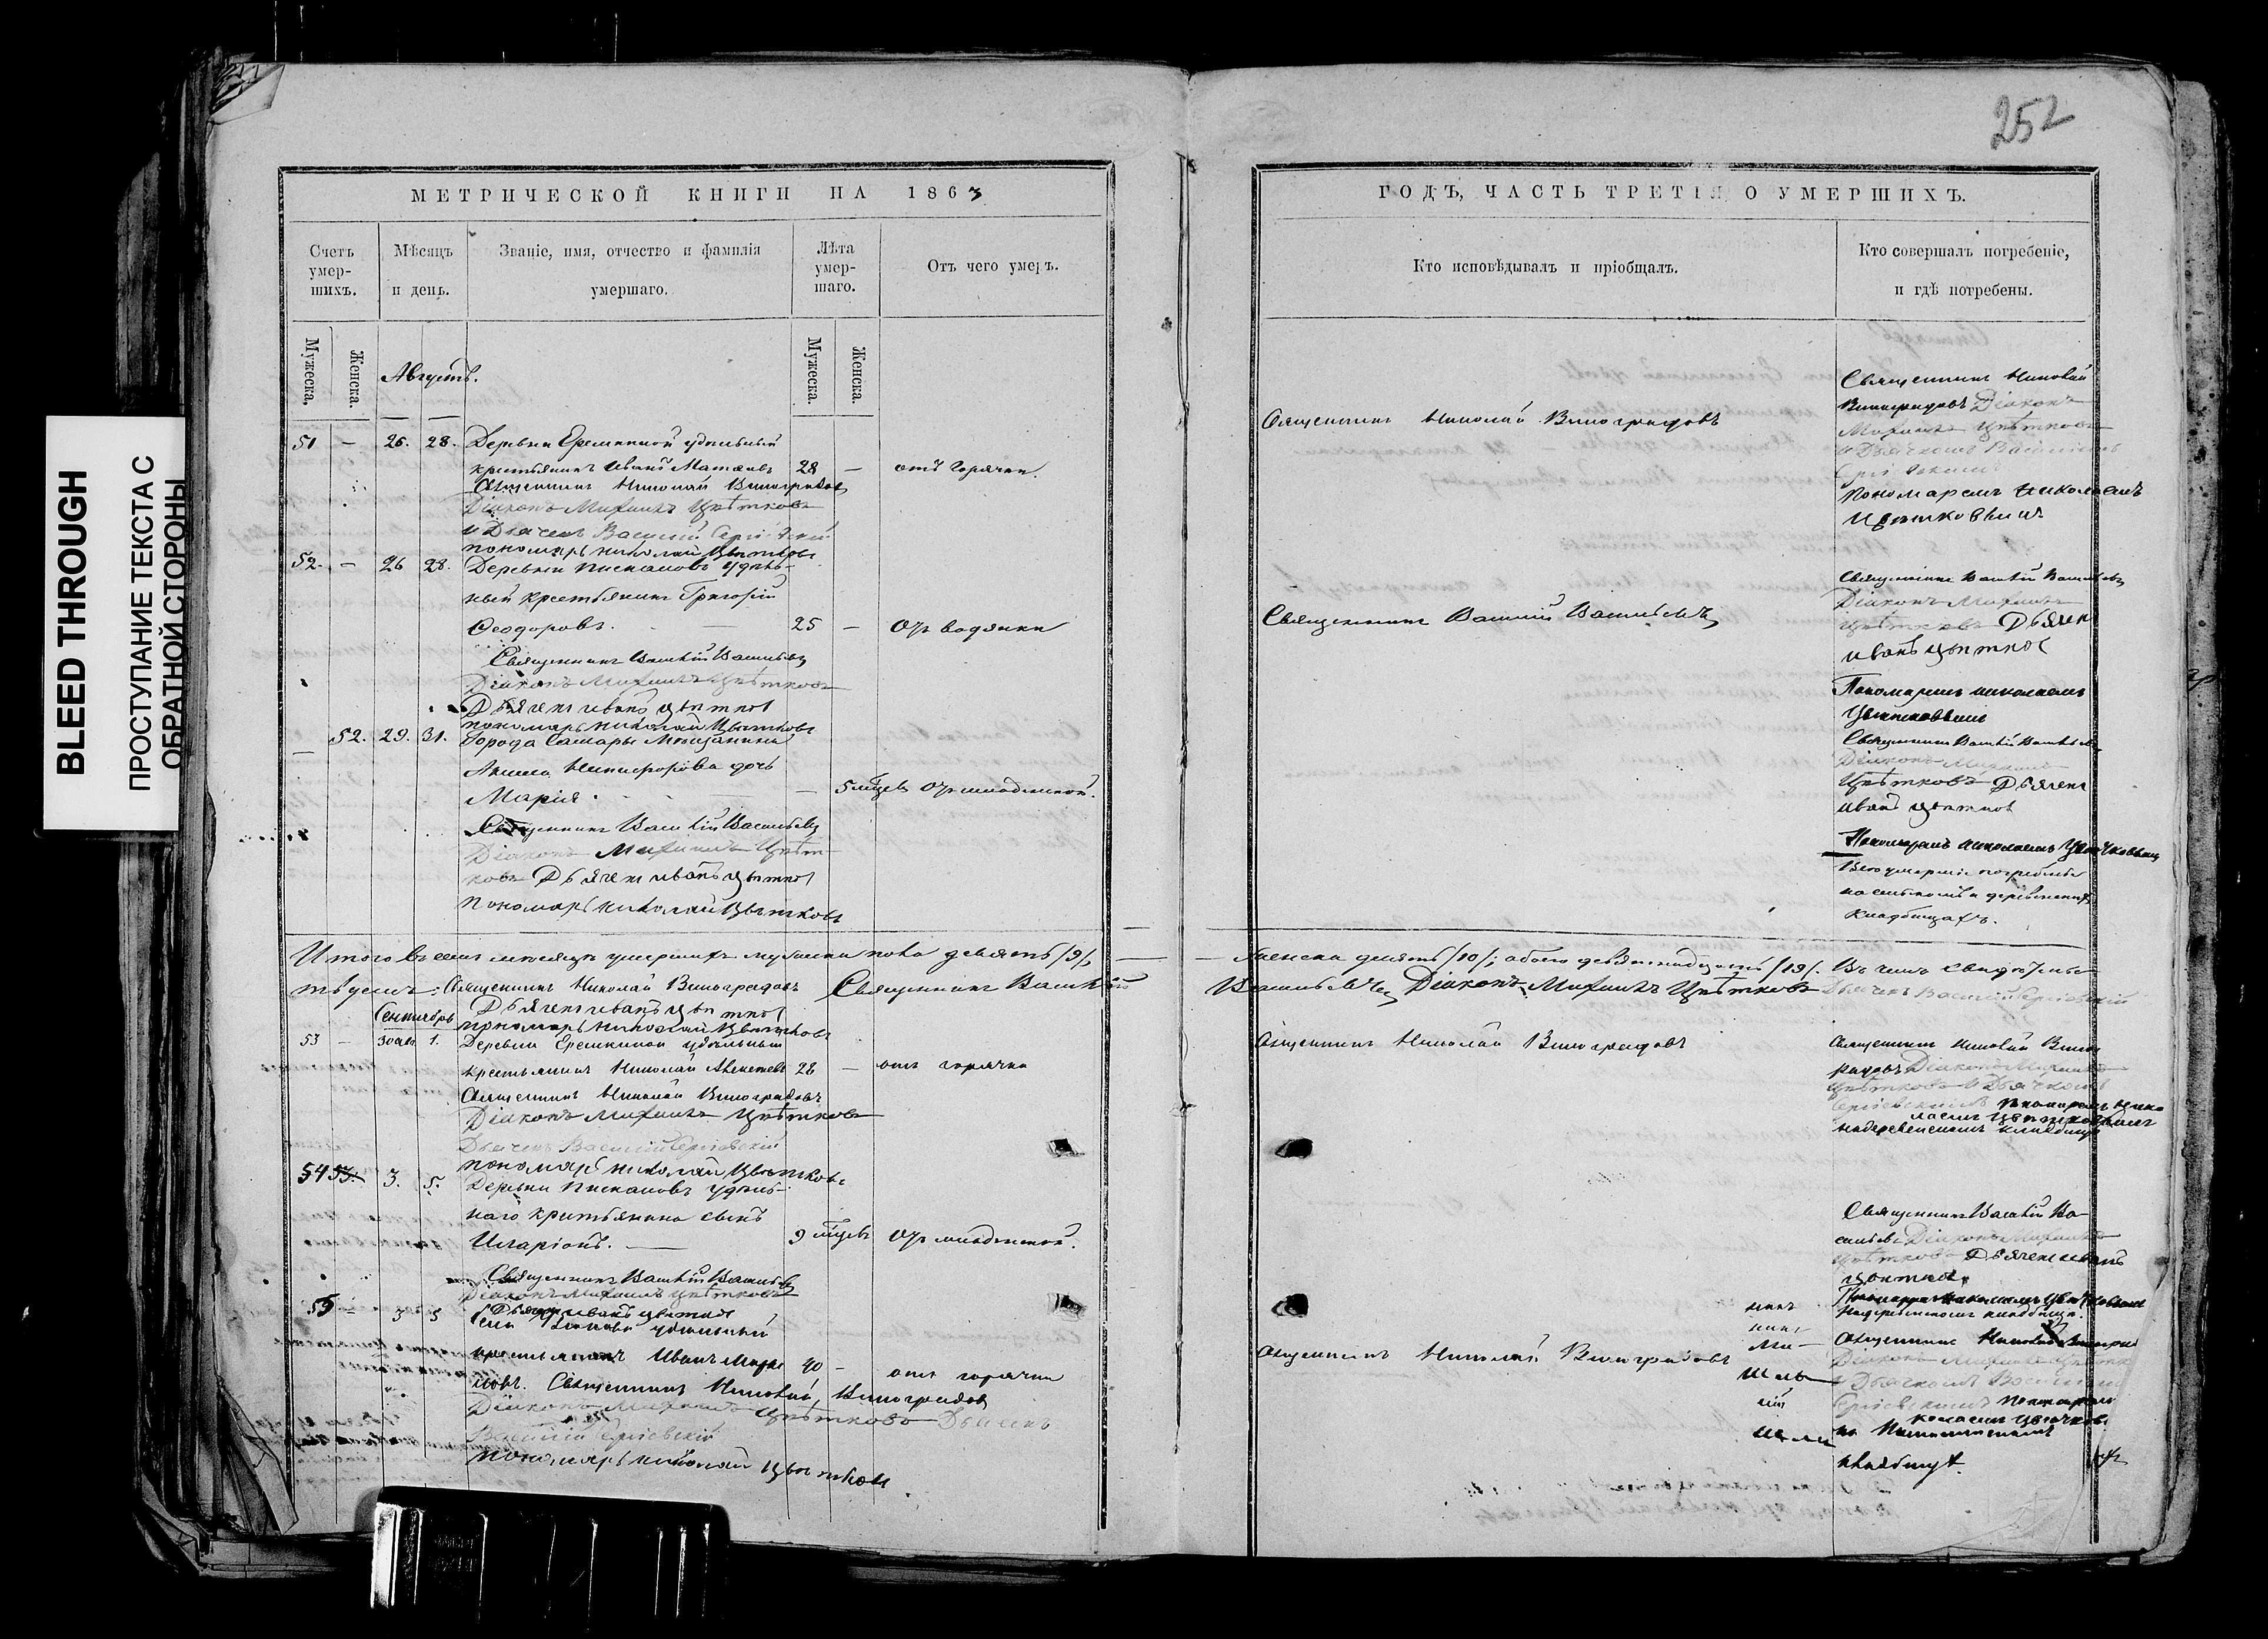 BLEED THROUGH
ПРОСТУПАНИЕ ТЕКСТА С
ОБРАТНОЙ СТОРОНЫ
252
МЕТРИЧЕСКОЙ КНИГИ НА 1863
Счетъ умер-шихъ.
Мѣсяцъ и день.
Званіе, имя, отчество и фамилія умершаго.
Лѣта умер-шаго.
Отъ чего умеръ.
Мужеска.
Женска.
Мужеска.
Женска.
Августъ.
51 — 26. 28. Деревни Еремкиной удѣльный
крестьянинъ Иванъ Матвѣевъ 28 — отъ горячки
Священникъ Николай Виноградовъ
Діаконъ Михаилъ Цвѣтковъ
и Дьячекъ Василій Сергіевскій
пономарь Николай Цвѣтковъ
52. — 26 28. Деревни Пискаловъ удѣль-
ный крестьянинъ Григорій
Ѳеодоровъ. — 25 — Отъ водянки
Священникъ Василій Васильевъ
Діаконъ Михаилъ Цвѣтковъ
Дьячекъ Иванъ Цвѣтковъ
пономарь Николай Цвѣтковъ
52. 29. 31. Города Самары Мѣщанина
Никифорова дочь
Марія. — 5 мѣсцевъ Отъ младенской.
Священникъ Василій Васильевъ
Діаконъ Михаилъ Цвѣт-
ковъ Дьячекъ Иванъ Цвѣтковъ
Пономарь Николай Цвѣтковъ
Итого въ семъ мѣсяцѣ умершихъ мужеска пола девять /9/,
тѣльс: Священникъ Николай Виноградовъ Священникъ Василій
Дьячекъ Иванъ Цвѣтковъ
Сентябрь пономарь Николай Цвѣтковъ
53 — 30 ав. 1. Деревни Еремкиной удѣльный
крестьянинъ Николай 28 — отъ горячки
Священникъ Николай Виноградовъ
Діаконъ Михаилъ Цвѣтковъ
Дьячекъ Василій Сергіевскій
пономарь Николай Цвѣтковъ
54 3. 5. Деревни Пискаловъ удѣль-
наго крестьянина сынъ
Иларіонъ. — 9 мѣсцевъ Отъ младенской.
Священникъ Василій Васильевъ
Діаконъ Михаилъ Цвѣтковъ
Дьячекъ Иванъ Цвѣтковъ
55 — 3 5 удѣльный
крестьянинъ Иванъ 40 — отъ горячки
Священникъ Николай Виноградовъ
Діаконъ Михаилъ Цвѣтковъ Дьячекъ
Василій Сергіевскій
пономарь Николай Цвѣтковъ
ГОДЪ, ЧАСТЬ ТРЕТІЯ О УМЕРШИХЪ.
Кто исповѣдывалъ и пріобщалъ.
Кто совершалъ погребеніе, и гдѣ погребены.
Священникъ Николай Виноградовъ
Священникъ Николай
Виноградовъ Діаконъ
Михаилъ Цвѣтковъ
и Дьячкомъ Василіемъ
Сергіевскимъ
Пономаремъ Николаемъ
Цвѣтковымъ
Священникъ Василій Васильевъ
Священникъ Василій Васильевъ
Діаконъ Михаилъ
Цвѣтковъ Дьячекъ
Иванъ Цвѣтковъ
Пономаремъ Николаемъ
Цвѣтковымъ
Священникъ Василій Васильевъ
Діаконъ Михаилъ
Цвѣтковъ Дьячекъ
Иванъ Цвѣтковъ
Пономаремъ Николаемъ Цвѣтковымъ
Всѣ умершіе погребены
на сельскомъ и деревенскихъ
кладбищахъ.
Женска десять /10/; обоего девятнадцать /19/. Въ чемъ свидѣтель
Васильевъ Діаконъ Михаилъ Цвѣтковъ Дьячекъ Василій Сергіевскій
Священникъ Николай Виноградовъ
Священникъ Николай Виног
радовъ Діаконъ Михаилъ
Цвѣтковъ и Дьячкомъ
Сергіевскимъ Пономаремъ Нико
лаемъ Цвѣтковымъ
на деревенскомъ кладбищѣ
Священникъ Василій Ва-
сильевъ Діаконъ Михаилъ
Цвѣтковъ Дьячекъ Иванъ
Цвѣтковъ
Пономаремъ Николаемъ Цвѣтковымъ
на деревенскомъ кладбищѣ.
Священникъ Николай Виноградовъ
Священникъ Николай
Діаконъ Михаилъ
и Дьячкомъ Василіемъ
Сергіевскимъ Пономарем
колаемъ Цвѣтков.
на
кладбищѣ.